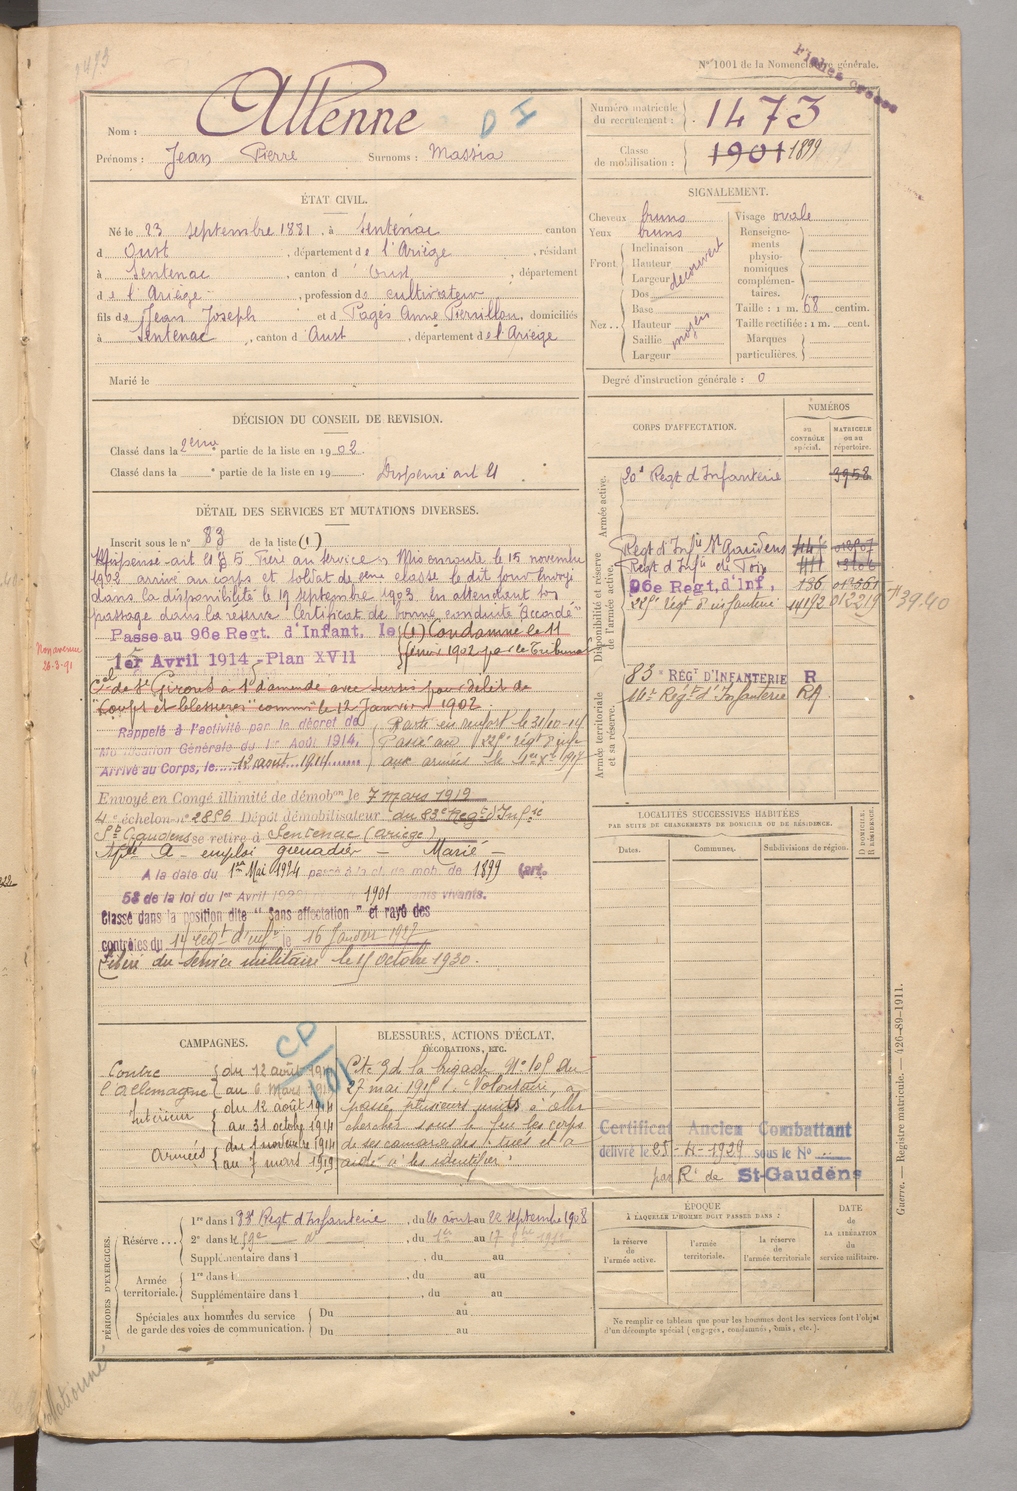 1473
N° 1001 de la Nomenclature générale.
Fiches
Nom : Attenne
DI
Prénoms : Jean Pierre Surnoms : Massia
Numéro matricule du recrutement : 1473
Classe de mobilisation : 1901 1899
ÉTAT CIVIL.
Né le 23 septembre 1881, à Sentenac canton
d Oust, département de l'Ariège, résidant
à Sentenac, canton d Oust, département
de l'Ariège, profession de cultivateur
fils de Jean Joseph et d Pagès Anne, domiciliés
à Sentenac, canton d Oust, département de l'Ariège
Marié le
SIGNALEMENT.
Cheveux bruns
Yeux bruns
Front { Inclinaison
Hauteur
Largeur
découvert
Nez { Dos
Base
Hauteur
Saillie
Largeur
moyen
Visage ovale
Renseignements physionomiques complémentaires.
Taille : 1 m. 68 centim.
Taille rectifiée : 1 m. cent.
Marques particulières.
Degré d'instruction générale : 0
DÉCISION DU CONSEIL DE REVISION.
Classé dans la 2ème partie de la liste en 1902
Classé dans la e partie de la liste en 19
Dispensé art 21
DÉTAIL DES SERVICES ET MUTATIONS DIVERSES.
Inscrit sous le n° 83 de la liste (1)
art 21 § 5 au service Mis en route le 15 novembre
1902 arrivé au corps et soldat de 2ème classe le dit jour Envoyé
dans la disponibilité le 19 septembre 1903 En attendant son
passage dans la réserve Certificat de bonne conduite "Accordé"
Passé au 96e Regt. d'Infant. le
1er Avril 1914 - Plan XVII
(1) Condamné le 11
février 1902 par le Tribunal
Cel de St Girons à 1f d'amende avec sursis pour délit de
"Coups et blessures" commis le 12 Janvier 1902
Non avenue
26-3-91
Rappelé à l'activité par le décret de
Mobilisation Générale du 1er Août 1914.
Arrivé au Corps, le 12 août 1914
Parti en renfort le 31/10-14
Passé au 22e régt d'infie
aux armées le
Envoyé en Congé illimité de démobon le 7 mars 1919
4e échelon n° 2856 Dépôt démobilisateur du 83e Regt d'Infie
St Gaudens se retire à Sentenac (Ariège)
Apte A - emploi grenadier - Marié -
A la date du 1er Mai 1924 passé à la cl. de mob. de 1899 (art.
58 de la loi du 1er Avril 1923) 1901 enfants vivants.
Classé dans la position dite "Sans affectation" et rayé des
contrôles du 14 régt d'infie le 16 Janvier 1927
Libéré du service militaire le 15 octobre 1930.
CORPS D'AFFECTATION.
NUMÉROS
au CONTRÔLE spécial.
MATRICULE ou au répertoire.
Armée active.
20e Régt d'Infanterie 3958
Disponibilité et réserve de l'armée active.
Régt d'Infie St Gaudens
Régt d'Infie de Foix
96e Regt, d'Inf, 136
régt d'infanterie
Armée territoriale et sa réserve.
83e RÉGT D'INFANTERIE R
14e Régt d'Infanterie RA
LOCALITÉS SUCCESSIVES HABITÉES
PAR SUITE DE CHANGEMENTS DE DOMICILE OU DE RÉSIDENCE.
Dates. Communes. Subdivisions de région. D DOMICILE. R RÉSIDENCE.
CAMPAGNES.
CD
101
Contre l'Allemagne { du 12 août 1914
au 6 mars 1919
Intérieur { du 12 août 1914
au 31 octobre 1914
Armées { du 1 novembre 1914
au 7 mars 1919
BLESSURES, ACTIONS D'ÉCLAT,
DÉCORATIONS, ETC.
Cité à l'O. de la brigade N° 105 du
27 mai 1915 : "Volontaire, a
passé plusieurs nuits à aller
chercher sous le feu les corps
de ses camarades tués et a
aidé à les identifier."
Certificat Ancien Combattant
délivré le 25-4-1929 sous le N°
par R' de St-Gaudens
Guerre. — Registre matricule. — 426-89-1911.
PÉRIODES D'EXERCICES.
Réserve { 1re dans l 83e Regt d'Infanterie, du 26 août au 22 septembre 1908
2e dans le 59e d°, du 1er au 17
Supplémentaire dans l , du au
Armée territoriale. { 1re dans l , du au
Supplémentaire dans l , du au
Spéciales aux hommes du service de garde des voies de communication. { Du au
Du au
ÉPOQUE
À LAQUELLE L'HOMME DOIT PASSER DANS :
la réserve de l'armée active.
l'armée territoriale.
la réserve de l'armée territoriale
DATE de LA LIBÉRATION du service militaire.
Ne remplir ce tableau que pour les hommes dont les services font l'objet
d'un décompte spécial (engagés, condamnés, omis, etc.).